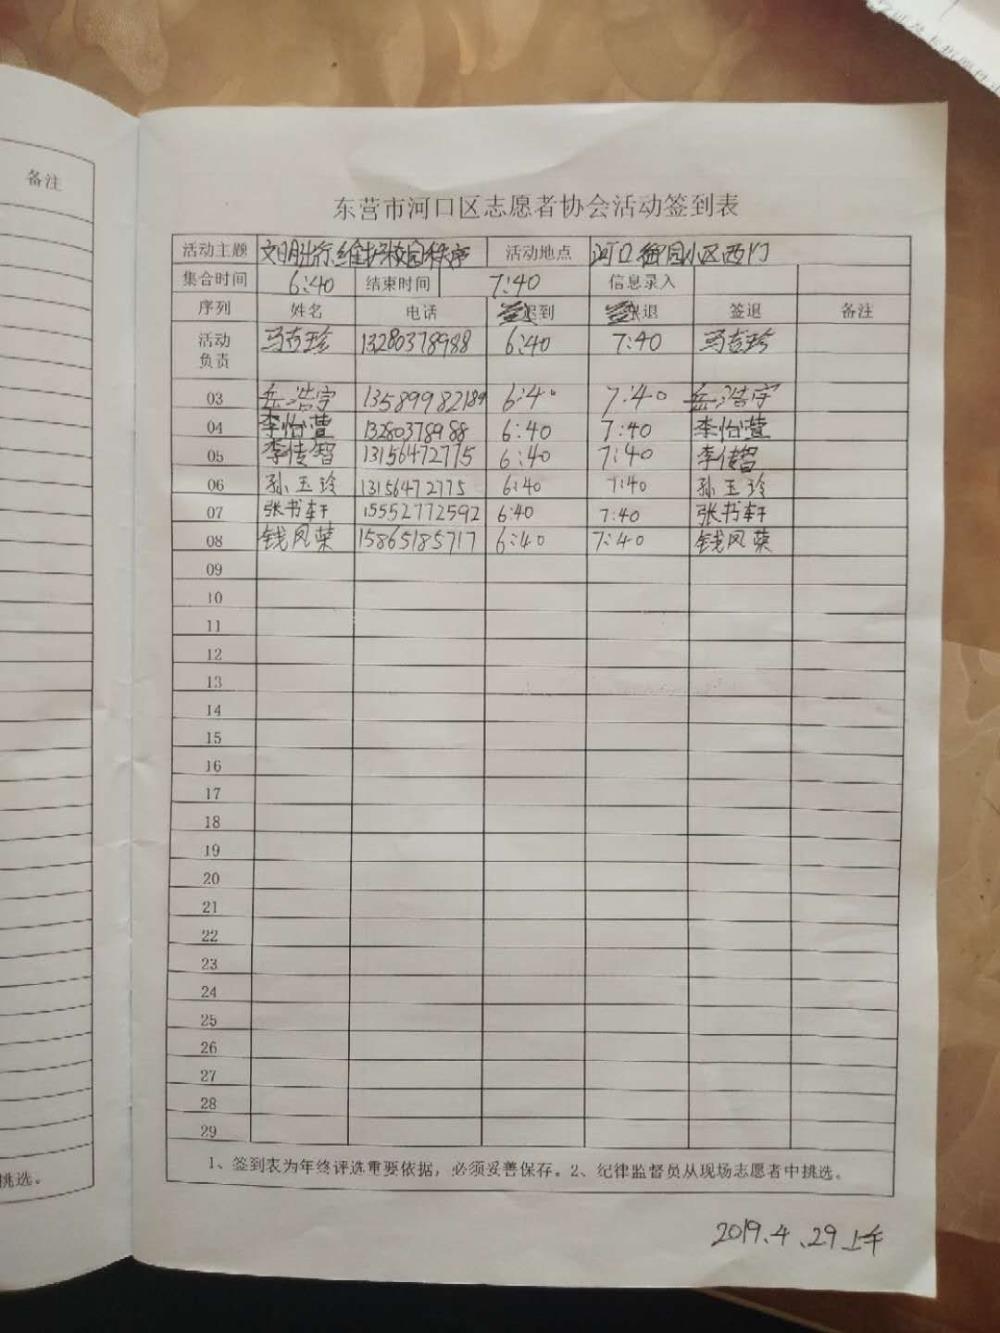 备注
东营市河口区志愿者协会活动签到表
活动主题 文明出行维护校园秩序 活动地点 河口御园小区西门
集合时间 6:40 结束时间 7:40 信息录入
序列 姓名 电话 到 退 签退 备注
活动负责 马吉珍 13280378988 6:40 7:40 马吉珍
03 岳浩宇 13589982189 6:40 7:40 岳浩宇
04 李怡萱 13280378988 6:40 7:40 李怡萱
05 李传智 13156472775 6:40 7:40 李传智
06 孙玉玲 13156472775 6:40 7:40 孙玉玲
07 张书轩 15552772592 6:40 7:40 张书轩
08 钱凤荣 15865185717 6:40 7:40 钱凤荣
09
10
11
12
13
14
15
16
17
18
19
20
21
22
23
24
25
26
27
28
29
1、签到表为年终评选重要依据，必须妥善保存。2、纪律监督员从现场志愿者中挑选。
挑选。
2019.4.29上午